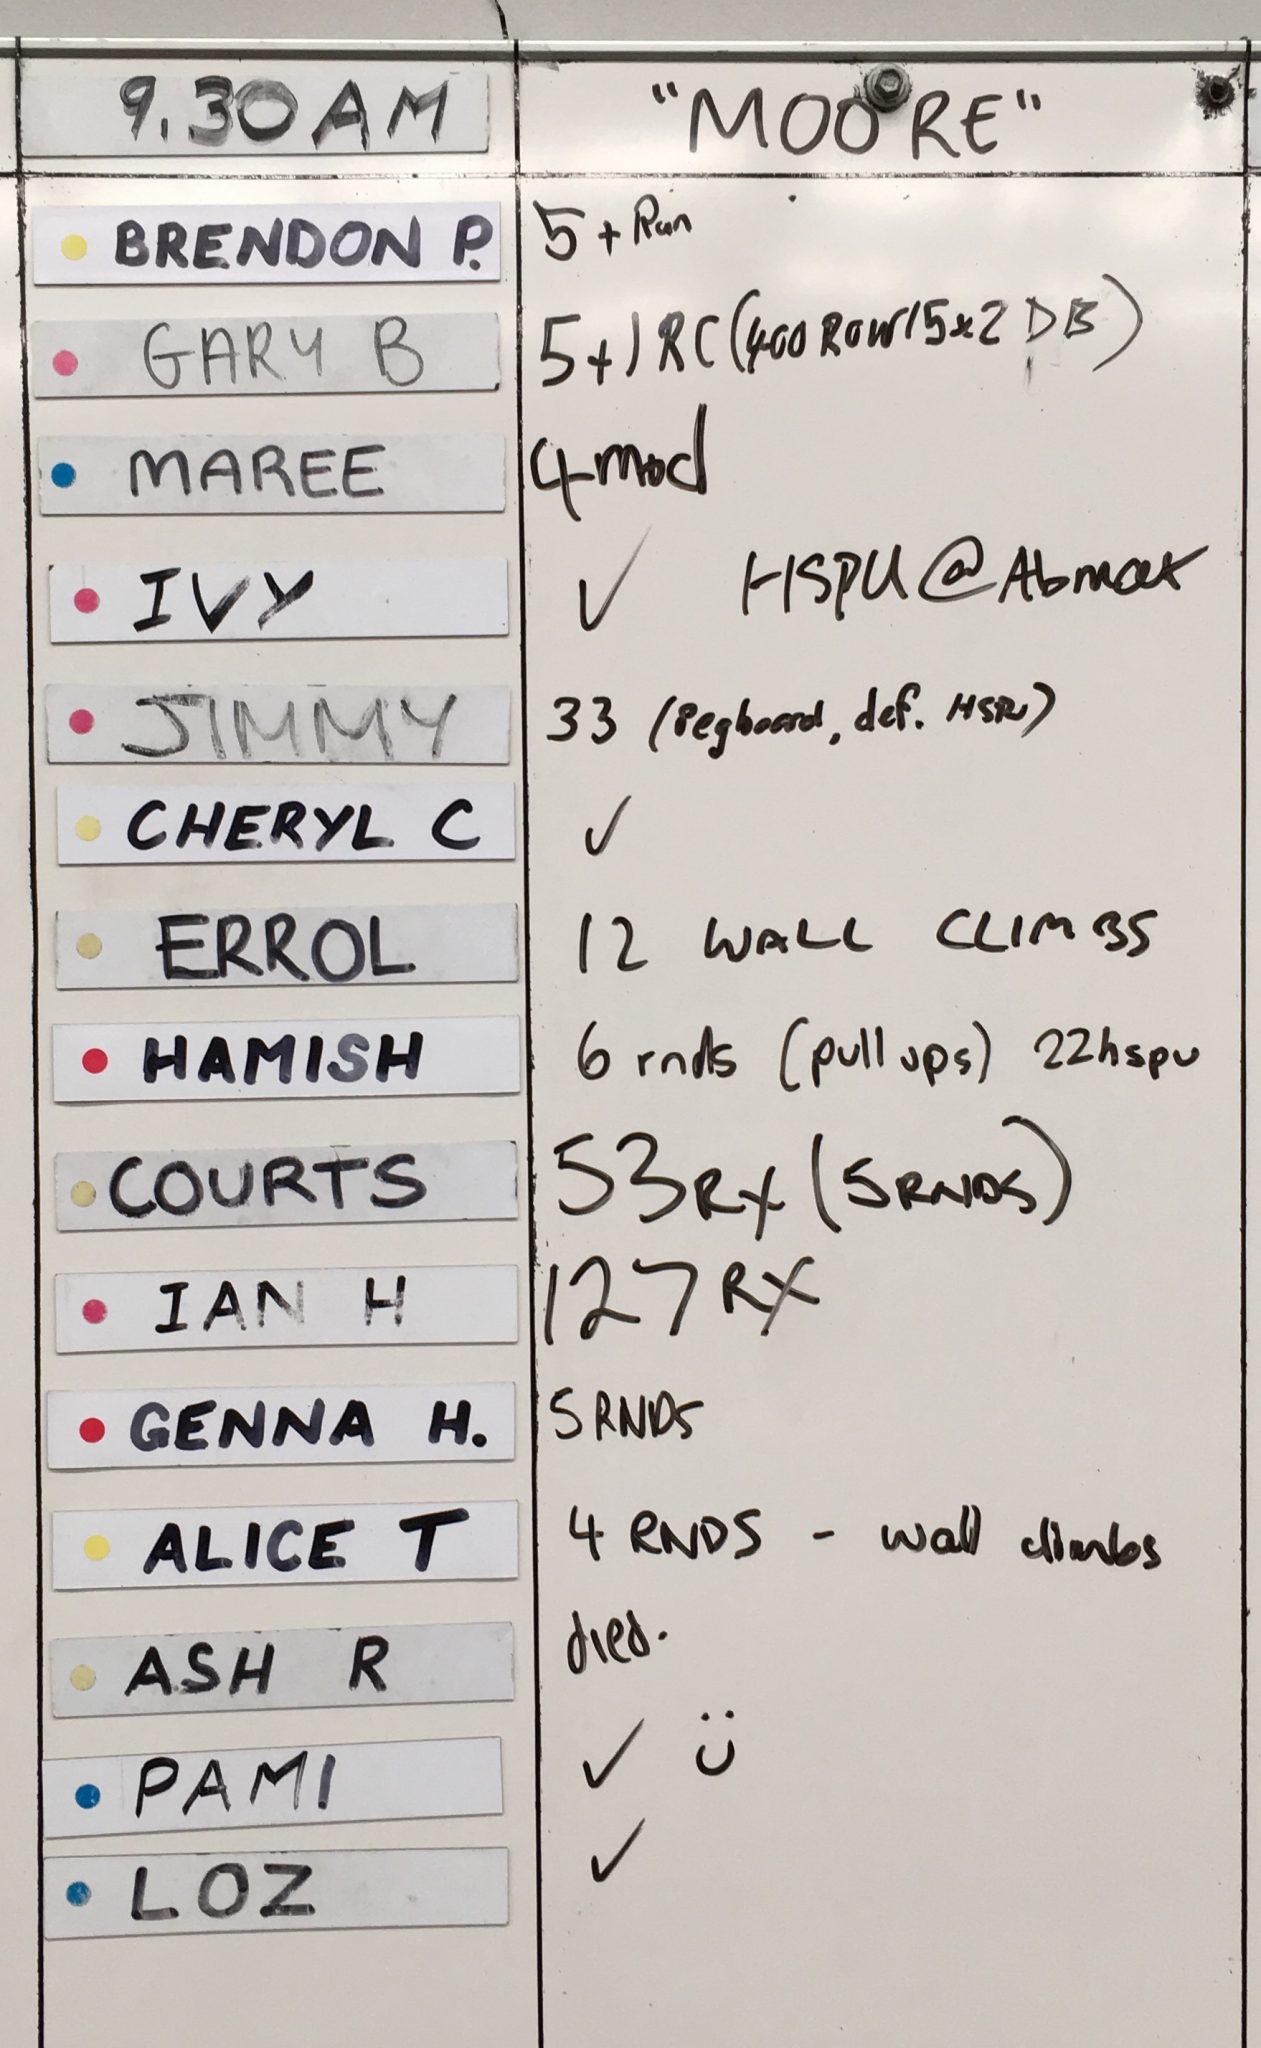 9.30 AM "MOORE"
BRENDON P. 5 + Run
GARY B 5+1 RC (400 ROW/15x2 DB)
MAREE 4 mod
IVY ✓ HSPU @ Abmat
JIMMY 33 (Pegboard, def. HSPU)
CHERYL C ✓
ERROL 12 WALL CLIMBS
HAMISH 6 rnds (pull ups) 22hspu
COURTS 53 RX (5 RNDS)
IAN H 127 RX
GENNA H. 5 RNDS
ALICE T 4 RNDS - wall climbs
ASH R died.
PAMI ✓ Ü
LOZ ✓